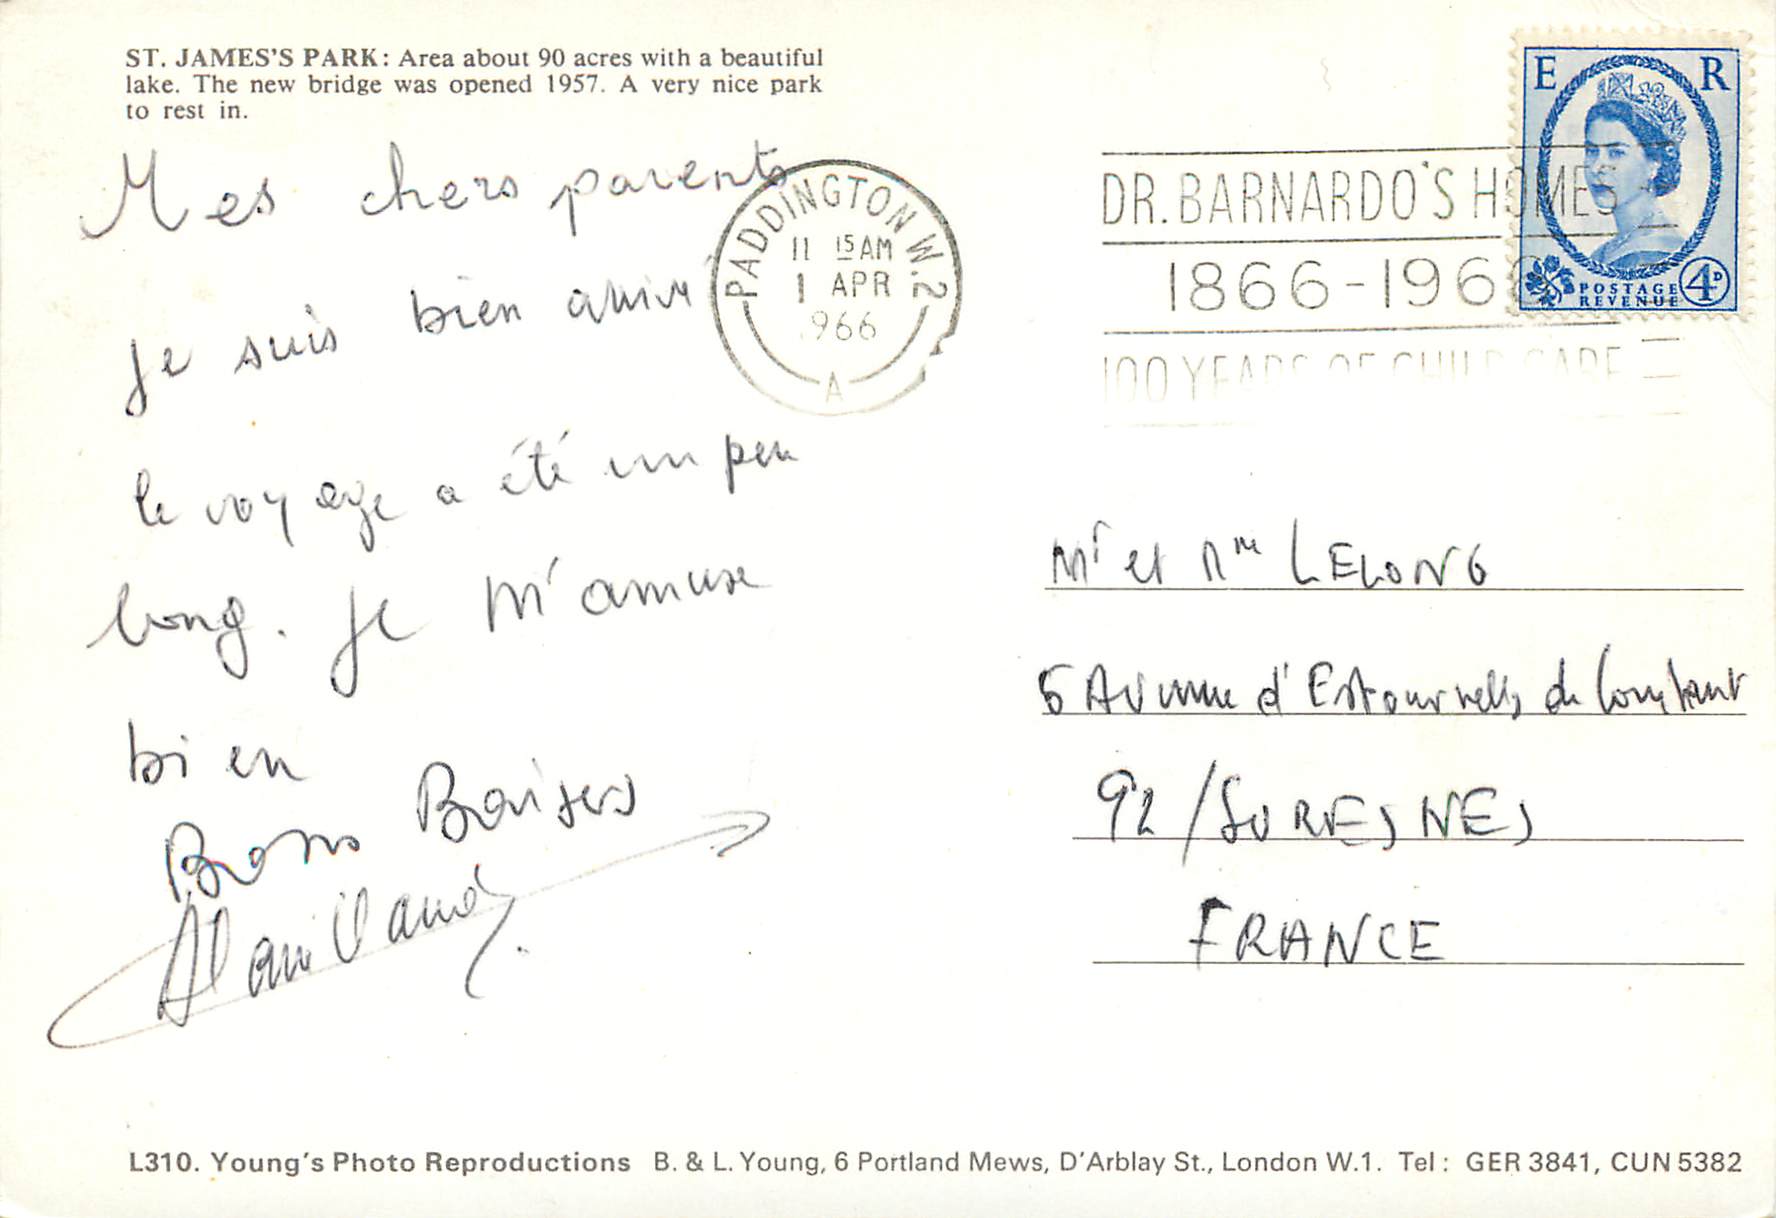 ST. JAMES'S PARK: Area about 90 acres with a beautiful
lake. The new bridge was opened 1957. A very nice park
to rest in.
Mes chers parents
je suis bien arrivé
le voyage a été un peu
long. Je m'amuse
bien
Bons Baisers
Alain
PADDINGTON W.2
11 15 AM
1 APR
966
A
DR. BARNARDO'S HOMES
1866-1966
100 YEARS OF CHILD CARE
E R
POSTAGE
REVENUE
4D
Mr et Mme LELONG
5 Avenue d'Estournelles de Constant
92/SURESNES
FRANCE
L310. Young's Photo Reproductions B. & L. Young, 6 Portland Mews, D'Arblay St., London W.1. Tel: GER 3841, CUN 5382